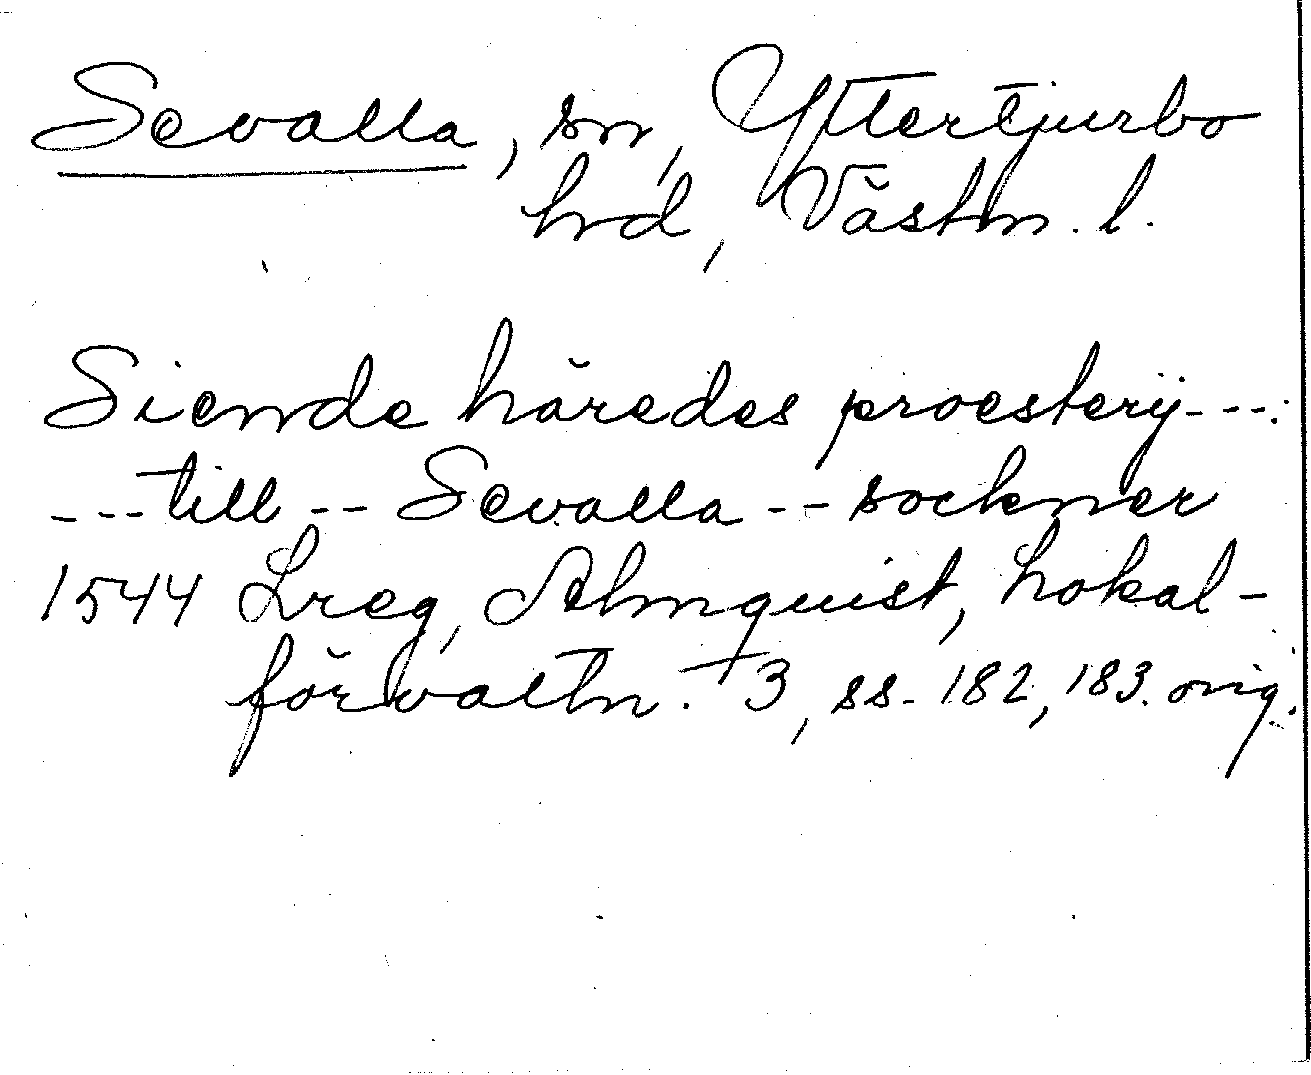 Sevalla, sn, Yttertjurbo
hrd, Västm. l.
Siende häredes proesterij---:
---till -- Sevalla -- sockner
1544 Lreg, Almquist, Lokal-
förvaltn. 3, ss. 182, 183. orig.